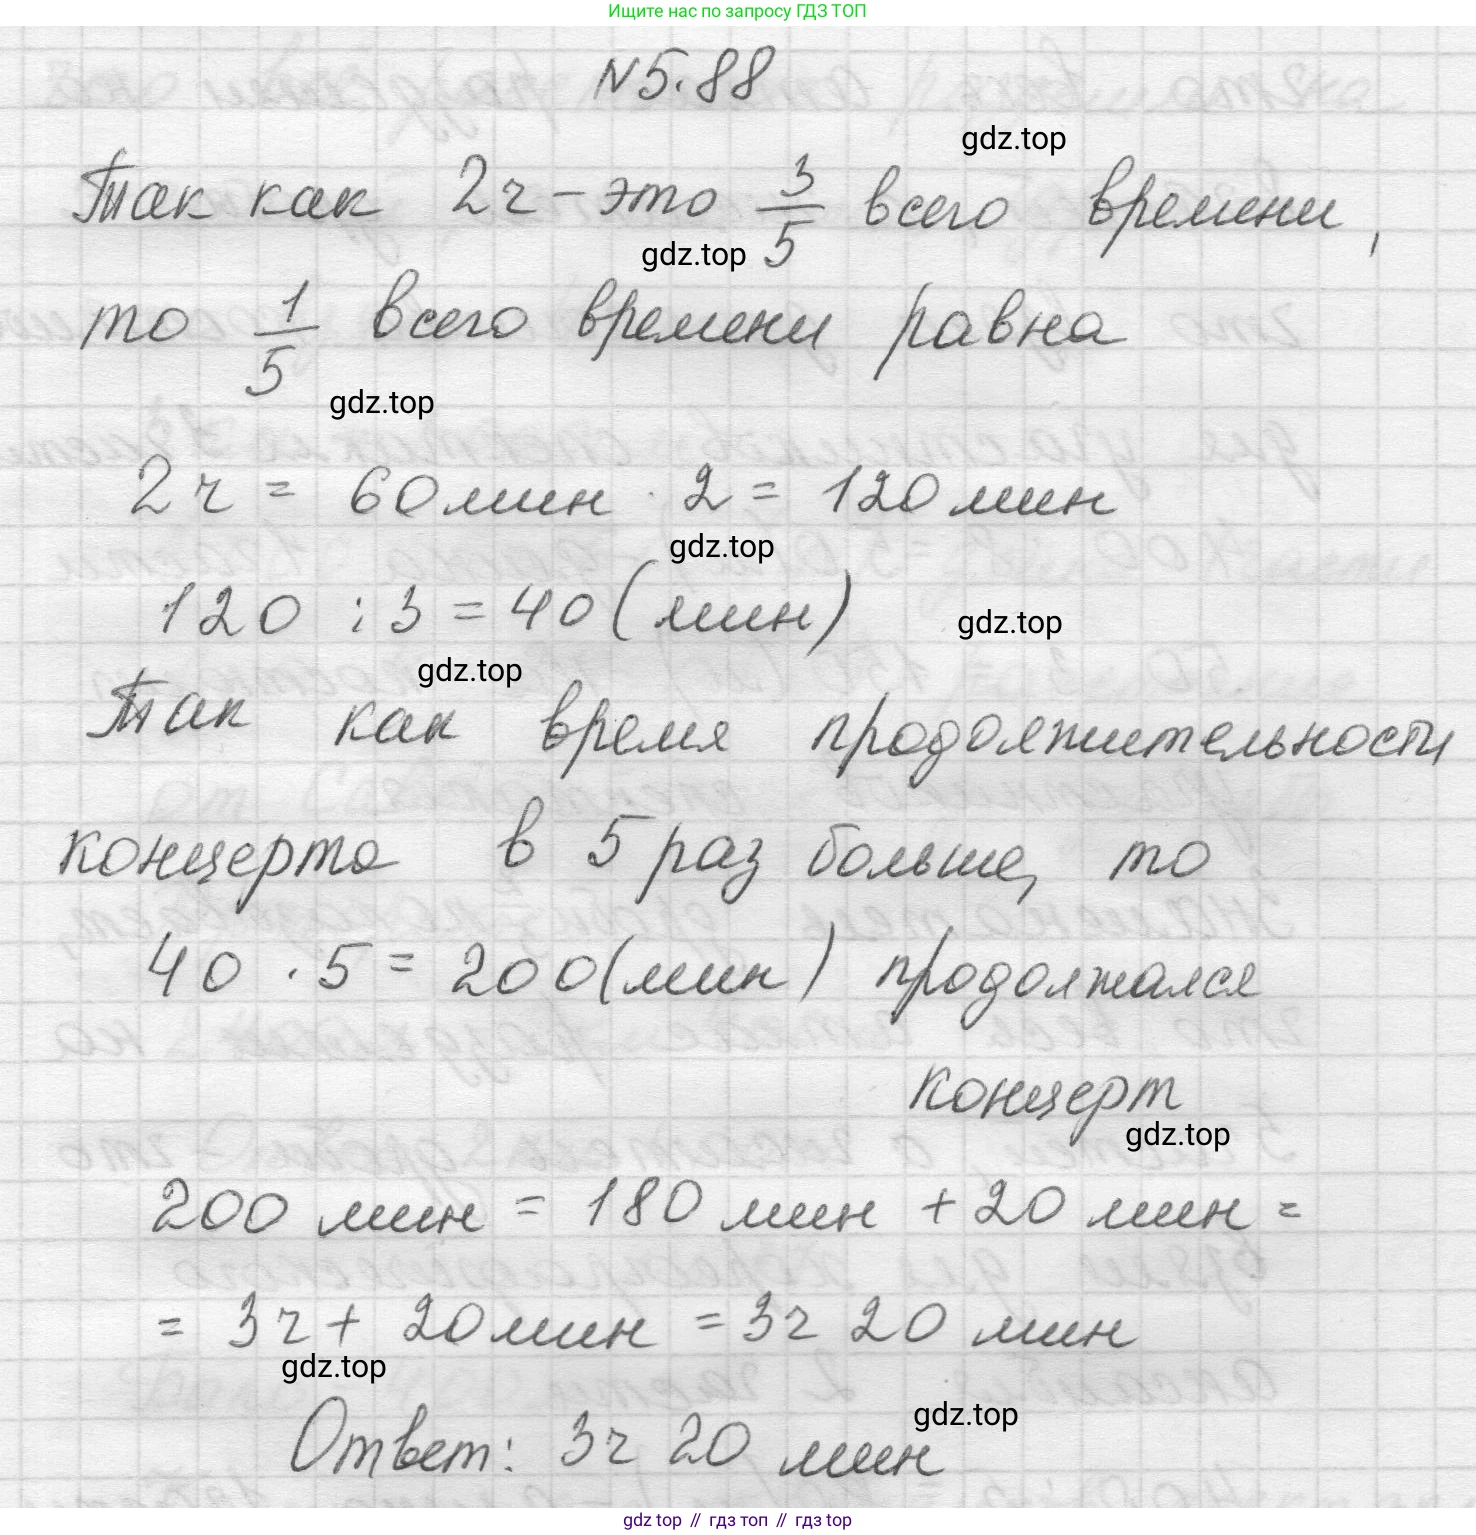 Ищите нас по запросу ГДЗ ТОП
№5.88
gdz.top
Так как 2ч – это 3/5 всего времени,
gdz.top
то 1/5 всего времени равна
gdz.top
2ч = 60 мин · 2 = 120 мин
gdz.top
120 : 3 = 40 (мин)
gdz.top
gdz.top
Так как время продолжительности
концерта в 5 раз больше, то
40 · 5 = 200 (мин) продолжался
концерт
gdz.top
200 мин = 180 мин + 20 мин =
= 3ч + 20 мин = 3ч 20 мин
gdz.top
gdz.top
Ответ: 3ч 20 мин
gdz top // гдз топ // гдз top